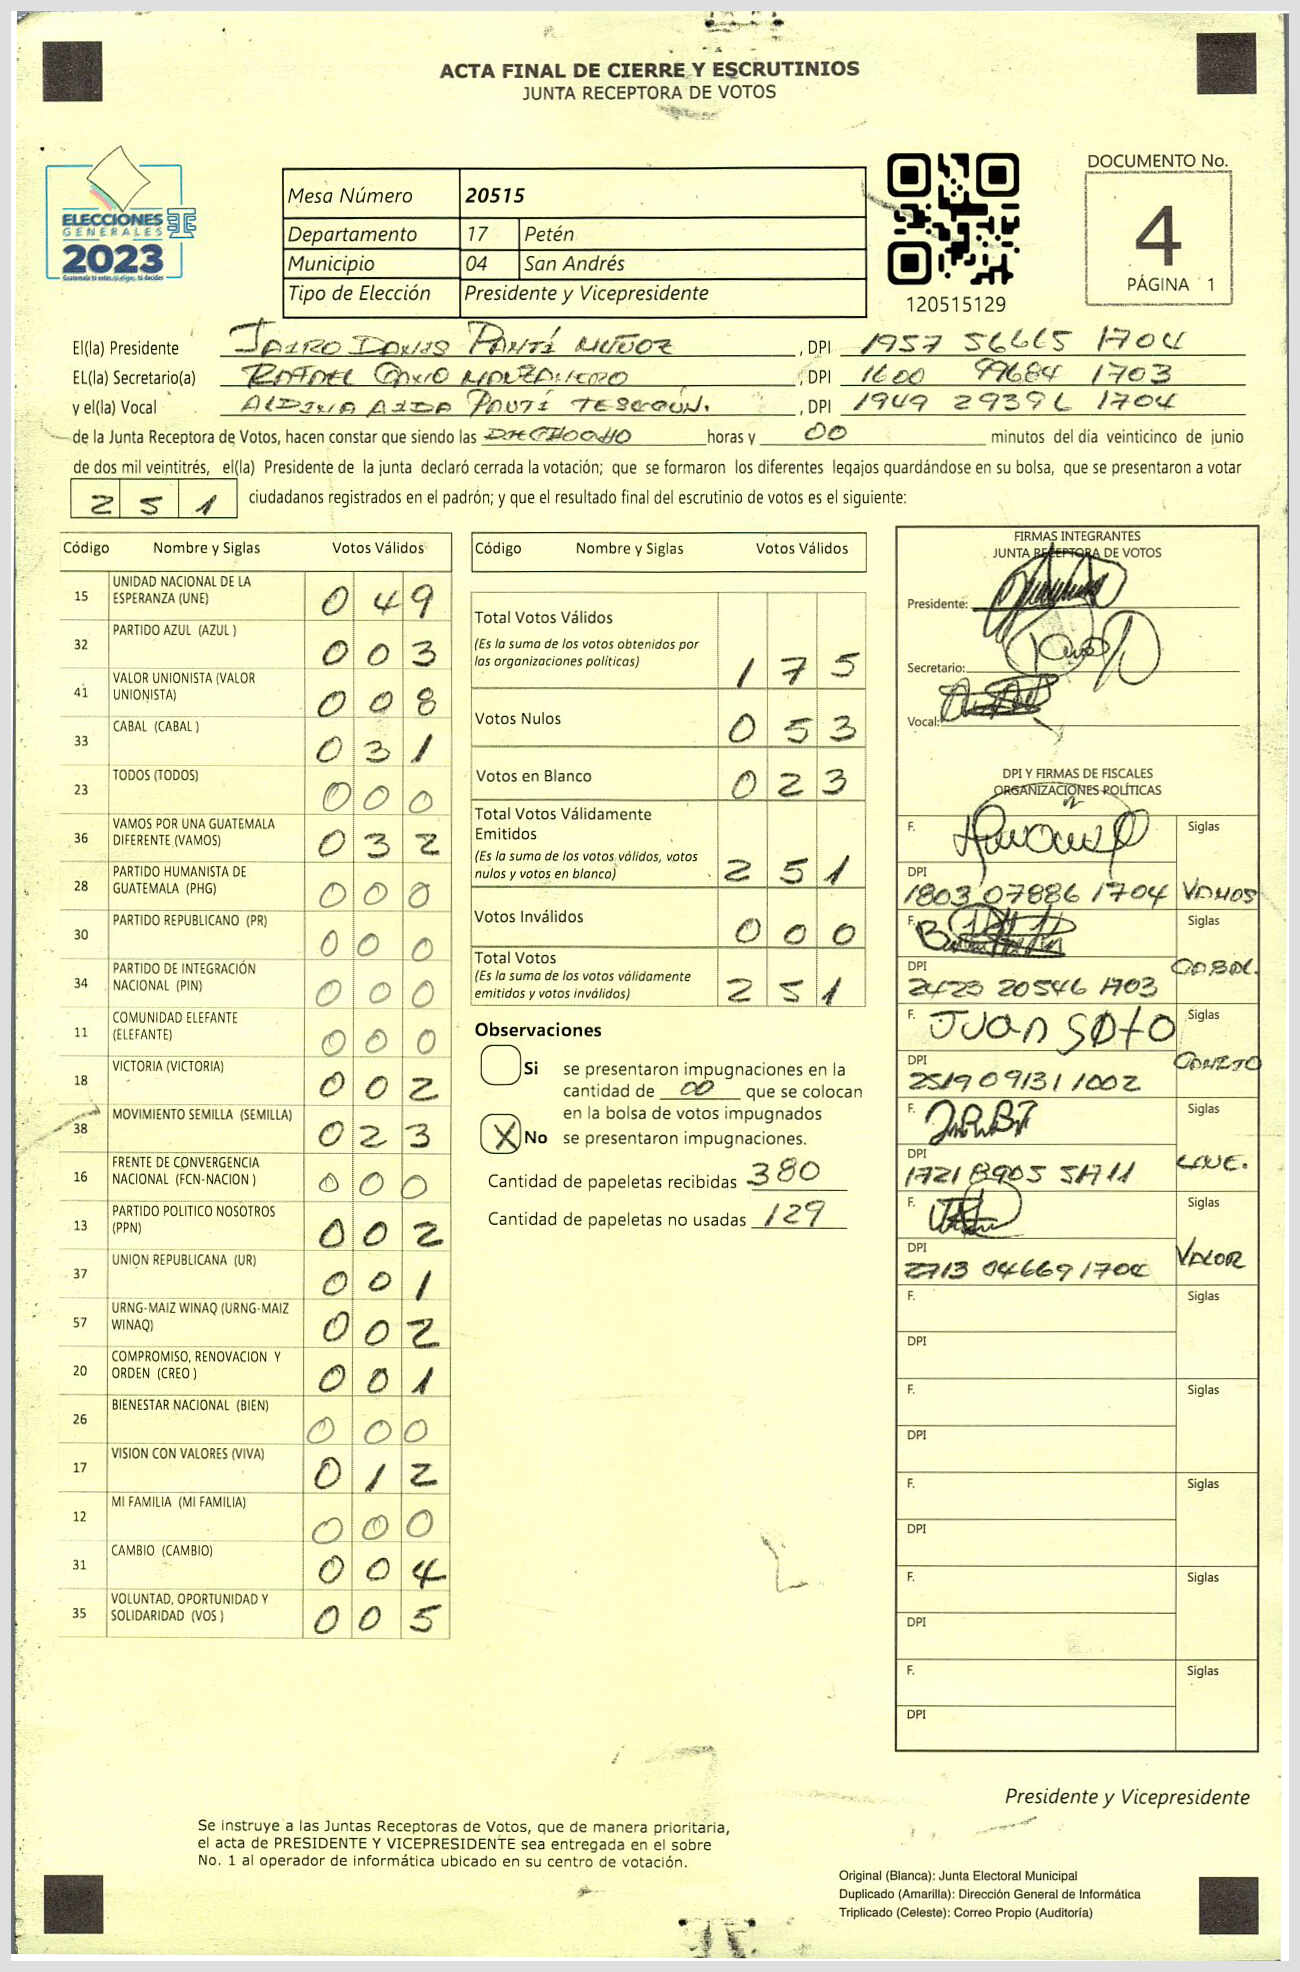 ACTA FINAL DE CIERRE Y ESCRUTINIOS
JUNTA RECEPTORA DE VOTOS
ELECCIONES
GENERALES
2023
Guatemala tú votas, tú eliges, tú decides
Mesa Número 20515
Departamento 17 Petén
Municipio 04 San Andrés
Tipo de Elección Presidente y Vicepresidente
120515129
DOCUMENTO No.
4
PÁGINA 1
El(la) Presidente JAIRO DANIS PANTÍ MUÑOZ , DPI 1957 56665 1704
EL(la) Secretario(a) RAFAEL MANZANERO , DPI 1600 99684 1703
y el(la) Vocal ALDINA AIDA PANTÍ TESUCÚN. , DPI 1949 29396 1704
de la Junta Receptora de Votos, hacen constar que siendo las DIECHOCHO horas y 00 minutos del día veinticinco de junio
de dos mil veintitrés, el(la) Presidente de la junta declaró cerrada la votación; que se formaron los diferentes legajos quardándose en su bolsa, que se presentaron a votar
251 ciudadanos registrados en el padrón; y que el resultado final del escrutinio de votos es el siguiente:
Código Nombre y Siglas Votos Válidos
15 UNIDAD NACIONAL DE LA ESPERANZA (UNE) 049
32 PARTIDO AZUL (AZUL ) 003
41 VALOR UNIONISTA (VALOR UNIONISTA) 008
33 CABAL (CABAL ) 031
23 TODOS (TODOS) 000
36 VAMOS POR UNA GUATEMALA DIFERENTE (VAMOS) 032
28 PARTIDO HUMANISTA DE GUATEMALA (PHG) 000
30 PARTIDO REPUBLICANO (PR) 000
34 PARTIDO DE INTEGRACIÓN NACIONAL (PIN) 000
11 COMUNIDAD ELEFANTE (ELEFANTE) 000
18 VICTORIA (VICTORIA) 002
38 MOVIMIENTO SEMILLA (SEMILLA) 023
16 FRENTE DE CONVERGENCIA NACIONAL (FCN-NACION ) 000
13 PARTIDO POLITICO NOSOTROS (PPN) 002
37 UNION REPUBLICANA (UR) 001
57 URNG-MAIZ WINAQ (URNG-MAIZ WINAQ) 002
20 COMPROMISO, RENOVACION Y ORDEN (CREO ) 001
26 BIENESTAR NACIONAL (BIEN) 000
17 VISION CON VALORES (VIVA) 012
12 MI FAMILIA (MI FAMILIA) 000
31 CAMBIO (CAMBIO) 004
35 VOLUNTAD, OPORTUNIDAD Y SOLIDARIDAD (VOS ) 005
Código Nombre y Siglas Votos Válidos
Total Votos Válidos
(Es la suma de los votos obtenidos por
las organizaciones políticas) 175
Votos Nulos 053
Votos en Blanco 023
Total Votos Válidamente
Emitidos
(Es la suma de los votos válidos, votos
nulos y votos en blanco) 251
Votos Inválidos 000
Total Votos
(Es la suma de los votos válidamente
emitidos y votos inválidos) 251
Observaciones
Si se presentaron impugnaciones en la
cantidad de 00 que se colocan
en la bolsa de votos impugnados
X No se presentaron impugnaciones.
Cantidad de papeletas recibidas 380
Cantidad de papeletas no usadas 129
FIRMAS INTEGRANTES
JUNTA RECEPTORA DE VOTOS
Presidente:
Secretario:
Vocal:
DPI Y FIRMAS DE FISCALES
ORGANIZACIONES POLÍTICAS
F. Siglas
DPI
1803 07886 1704 VAMOS
F. Siglas
DPI
2423 20546 1703 CABAL.
F. JUAN SOTO Siglas
DPI
2519 09131 1002
F. Siglas
DPI
1721 8905 51711
F. Siglas
DPI
2713 04669 1704 VALOR
F. Siglas
DPI
F. Siglas
DPI
F. Siglas
DPI
F. Siglas
DPI
F. Siglas
DPI
Presidente y Vicepresidente
Se instruye a las Juntas Receptoras de Votos, que de manera prioritaria,
el acta de PRESIDENTE Y VICEPRESIDENTE sea entregada en el sobre
No. 1 al operador de informática ubicado en su centro de votación.
Original (Blanca): Junta Electoral Municipal
Duplicado (Amarilla): Dirección General de Informática
Triplicado (Celeste): Correo Propio (Auditoría)